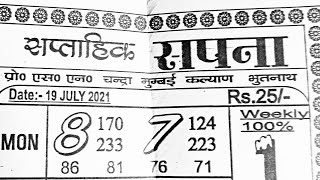 साप्ताहिक सपना
प्रो० एस० एन० चन्द्रा मुम्बई कल्याण भुतनाथ
Date:- 19 JULY 2021 Rs.25/-
MON 8 170 7 124 Weekly
233 223 100%
86 81 76 71 1